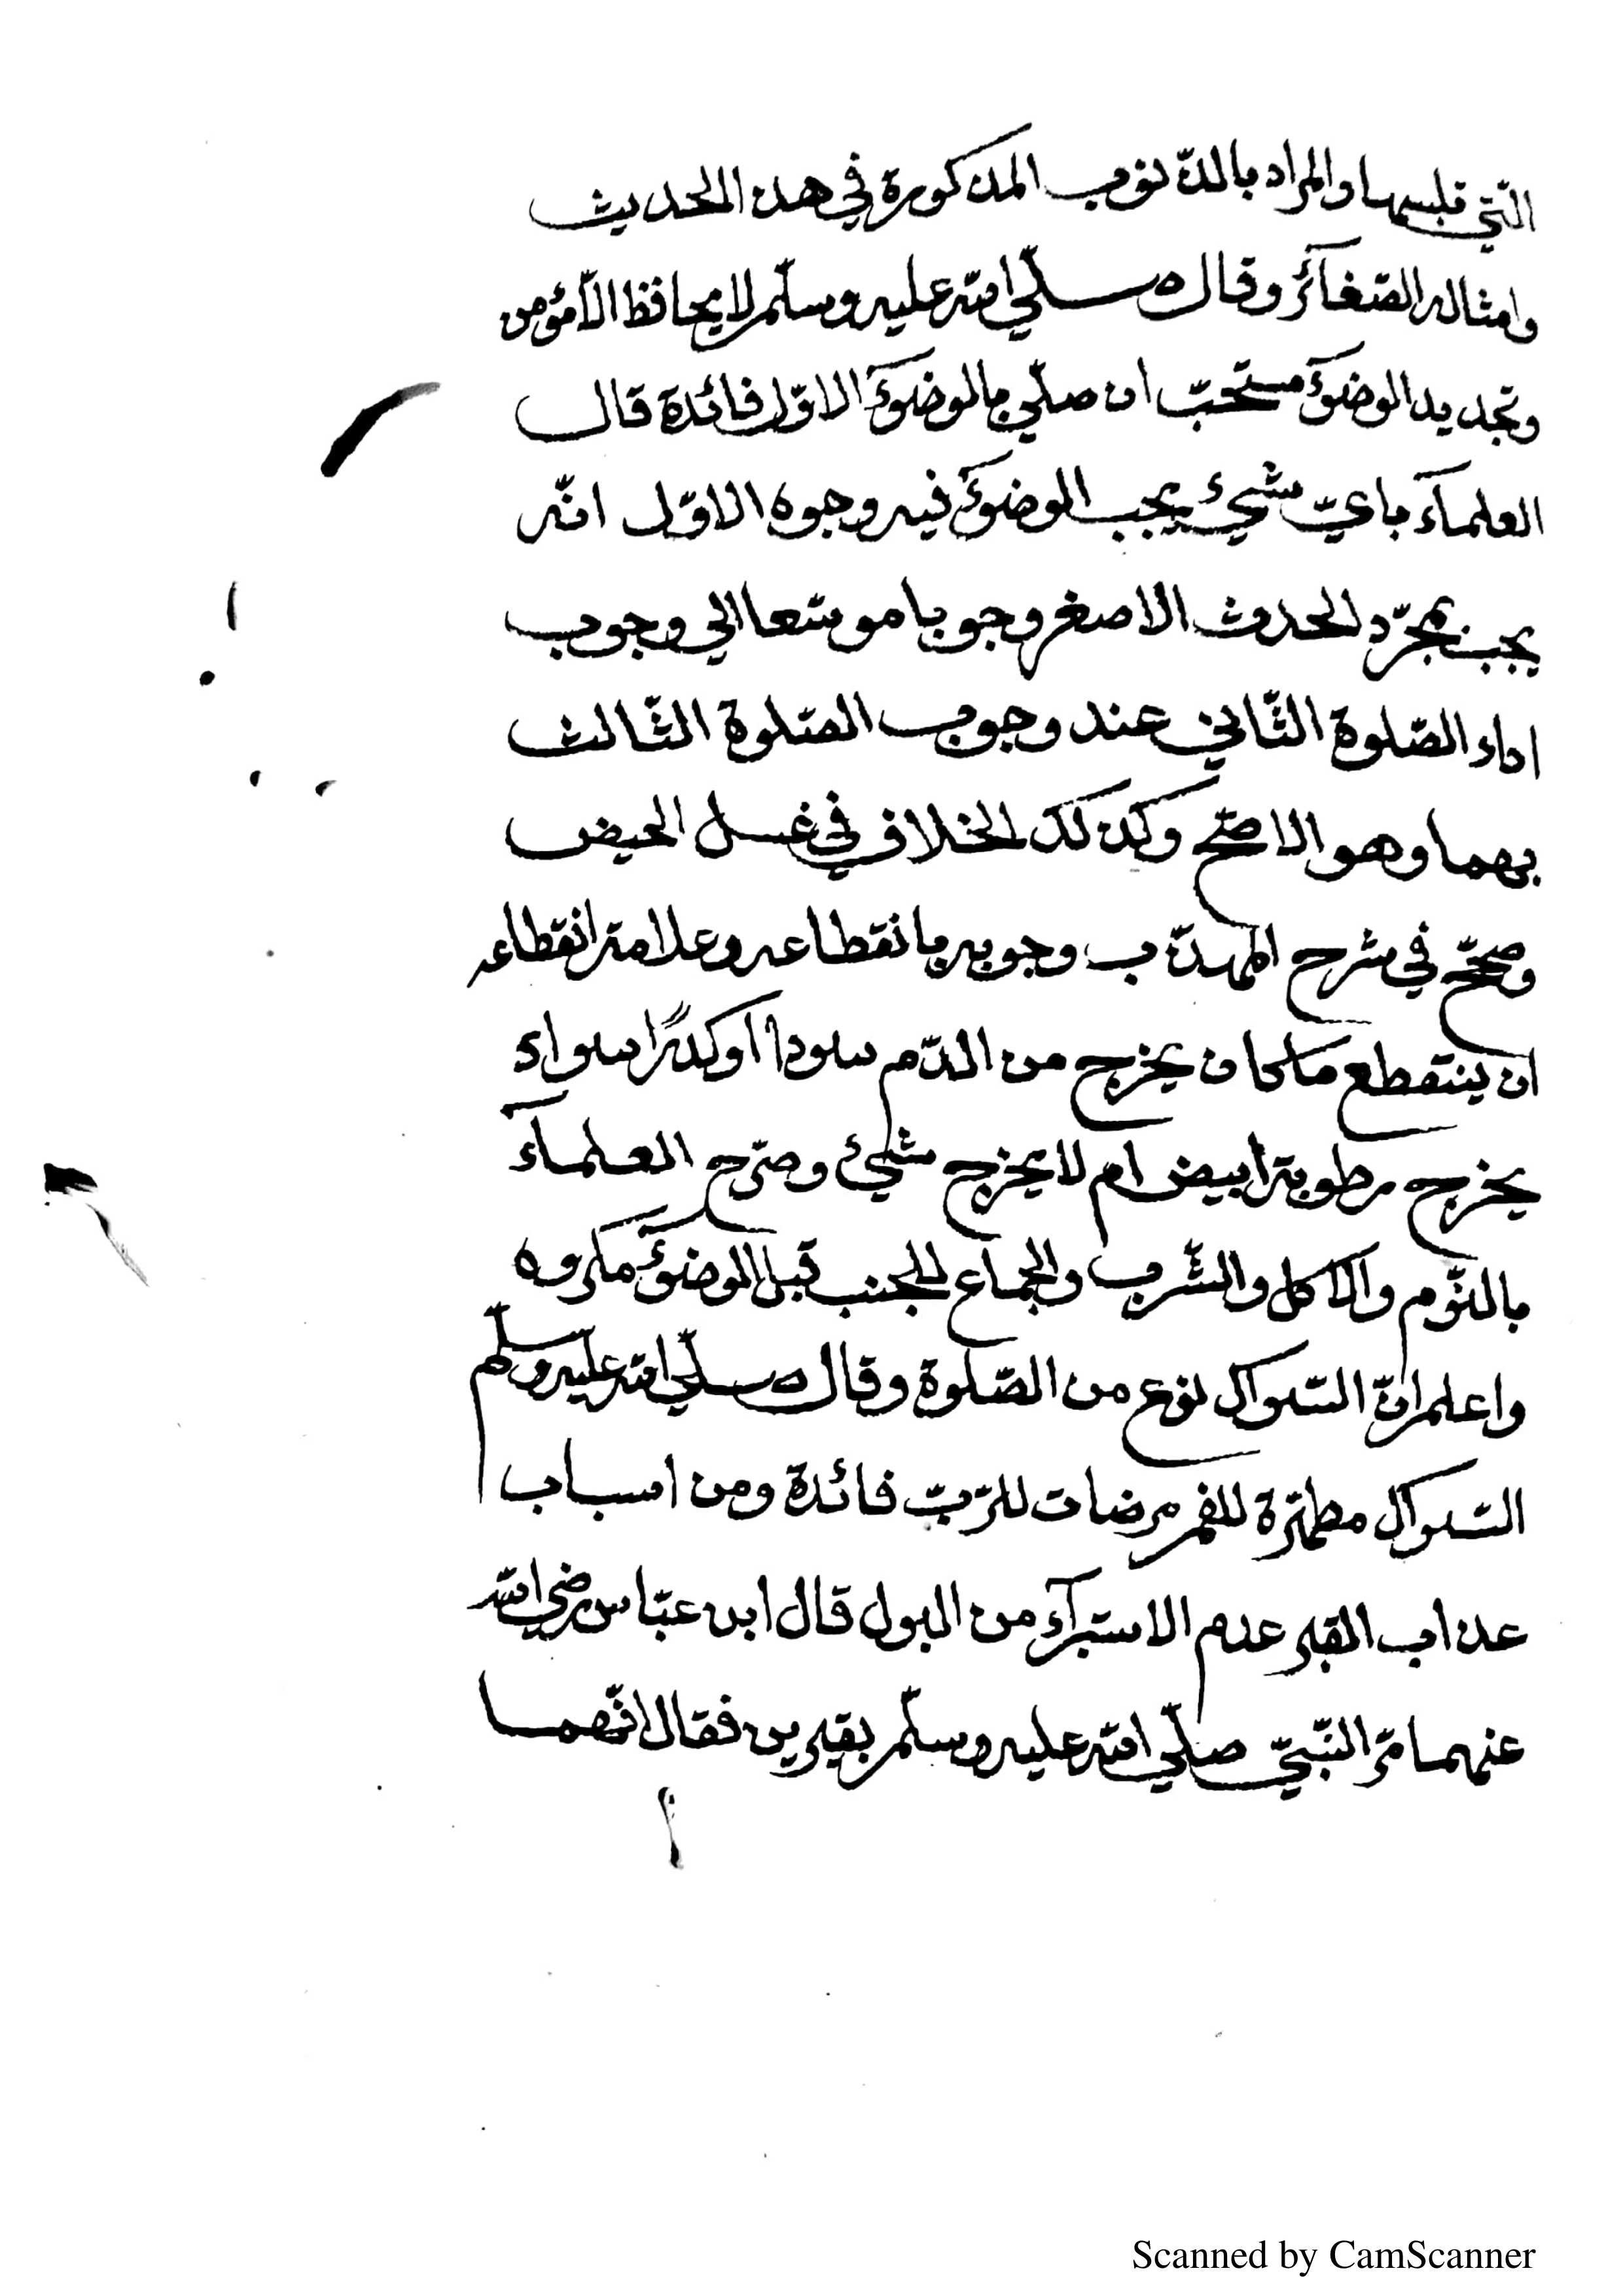 الّتي قبلسها والمراد بالذّنوب المذكورة في هذا الحديث
وامثاله الصّغائر وقال صلّي الله عليه وسلّم لا يحافظ الاّ مؤمن
وتجديد الوضوء مستحبّ ان صلّي بالوضوء الاوّل فائدة قال
العلماء باىّ شيئ يجب الوضوء فيه وجوه الاوّل انّه
يجب بمجرّد الحدث الاصغر وجوبا موسّعا الي وجوب
اداء الصّلوة الثّاني عند وجوب الصّلوة الثّالث
بهما وهو الاصحّ وكذلك الخلاف في غسل الحيض
وصحّح في شرح المهذّب وجوبه بانقطاعه وعلامة انقطاعه
ان ينقطع ما كان يخرج من الدّم سودا او كدرًا سواء
يخرج رطوبة ابيض ام لا يخرج شيئ وصرّح العلماء
بالنّوم والاكل والشّرب والجماع للجنب قبل الوضوء مكروه
واعلم انّ السّواك نوع من الصّلوة وقال صلّي الله عليه وسلّم
السّواك مطهّرة للفم مرضات للرّبّ فائدة ومن اسباب
عذاب القبر عدم الاستبراء من البول قال ابن عبّاس رضي الله
عنهما مرّ النّبيّ صلّي الله عليه وسلّم بقبرين فقال انّهما
Scanned by CamScanner